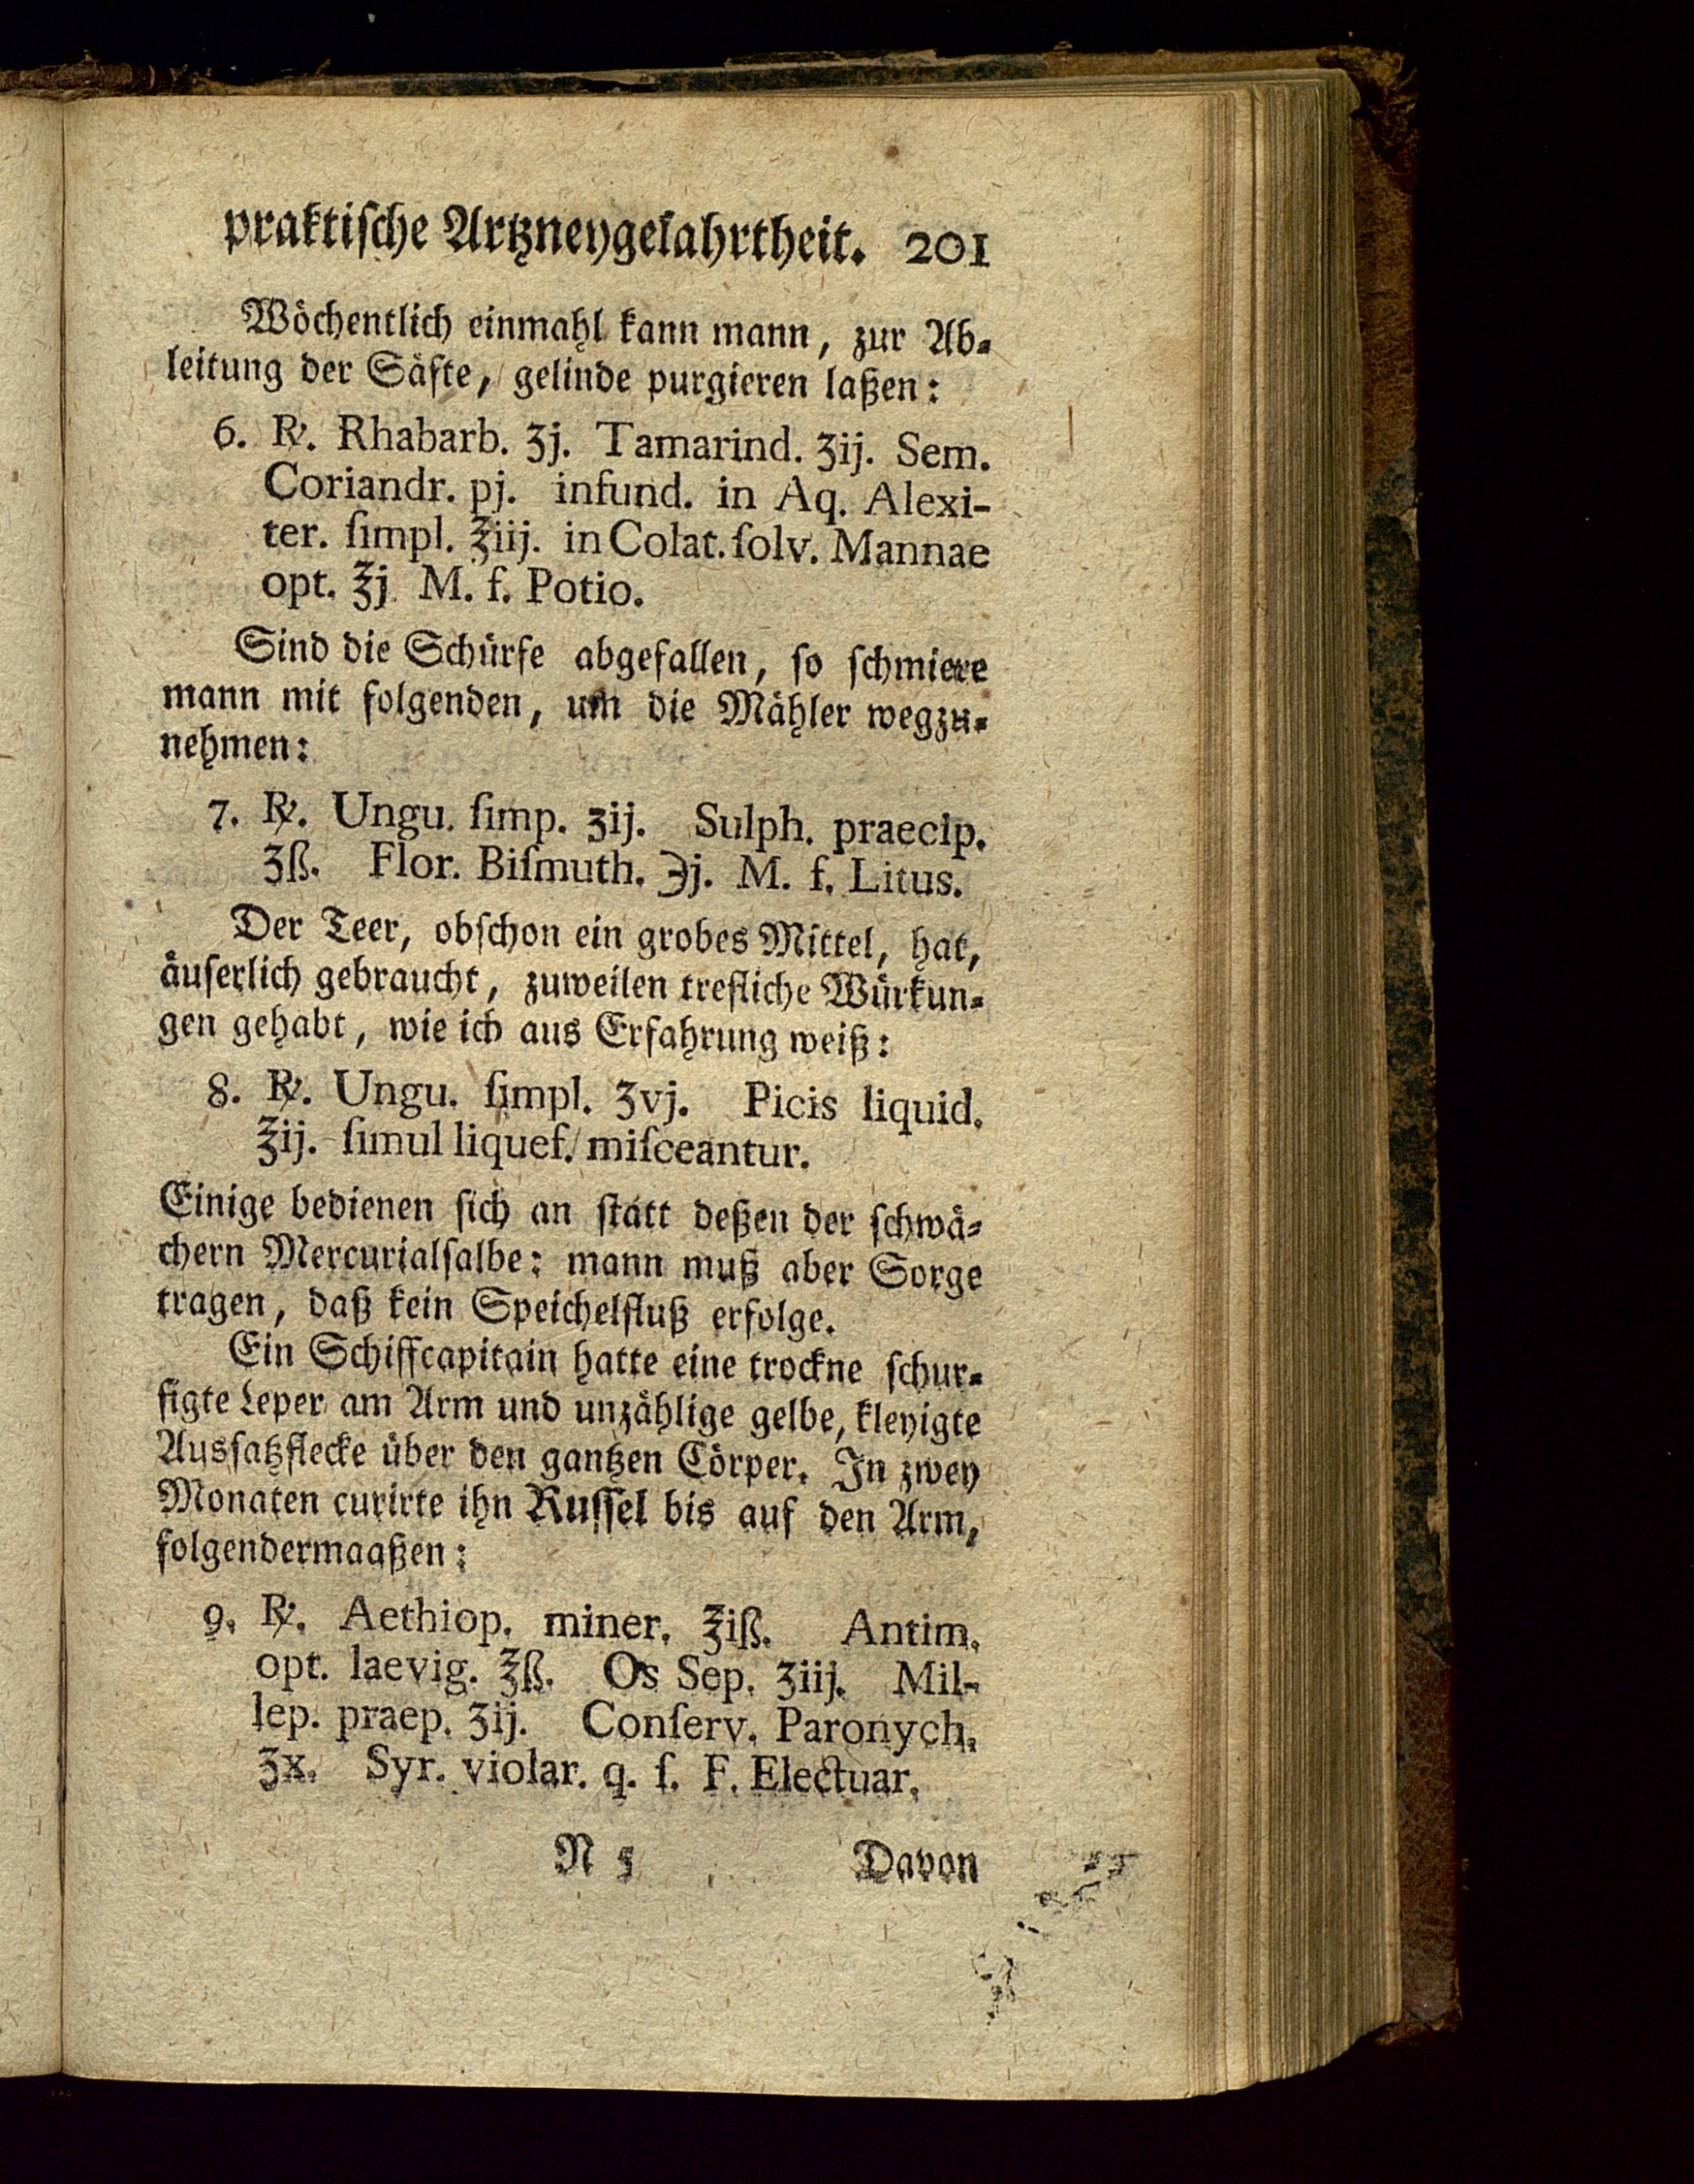 praktiſche Artzneygelahrtheit. 201
Wöchentlich einmahl kann mann, zur Ab-
leitung der Säfte, gelinde purgieren laßen:
6. ℞. Rhabarb. ʒj. Tamarind. ʒij. Sem.
Coriandr. pj. infund. in Aq. Alexi-
ter. ſimpl. ℥iij. in Colat. ſolv. Mannae
opt. ℥j M. f. Potio.
Sind die Schürfe abgefallen, ſo ſchmiere
mann mit folgenden, um die Mähler wegzu-
nehmen:
7. ℞. Ungu. ſimp. ʒij. Sulph. praecip.
ʒß. Flor. Biſmuth. ℈j. M. f. Litus.
Der Teer, obſchon ein grobes Mittel, hat,
äuſerlich gebraucht, zuweilen trefliche Würkun-
gen gehabt, wie ich aus Erfahrung weiß:
8. ℞. Ungu. ſimpl. ʒvj. Picis liquid.
℥ij. ſimul liquef. miſceantur.
Einige bedienen ſich an ſtatt deßen der ſchwä-
chern Mercurialſalbe: mann muß aber Sorge
tragen, daß kein Speichelfluß erfolge.
Ein Schiffcapitain hatte eine trockne ſchur-
figte Leper am Arm und unzählige gelbe, kleyigte
Ausſatzflecke über den gantzen Cörper. In zwey
Monaten curirte ihn Ruſſel bis auf den Arm,
folgendermaaßen:
9. ℞. Aethiop. miner. ℥iß. Antim.
opt. laevig. ℥ß. Os Sep. ʒiij. Mil-
lep. praep. ʒij. Conſerv. Paronych.
ʒx. Syr. violar. q. ſ. F. Electuar.
N 5 Davon